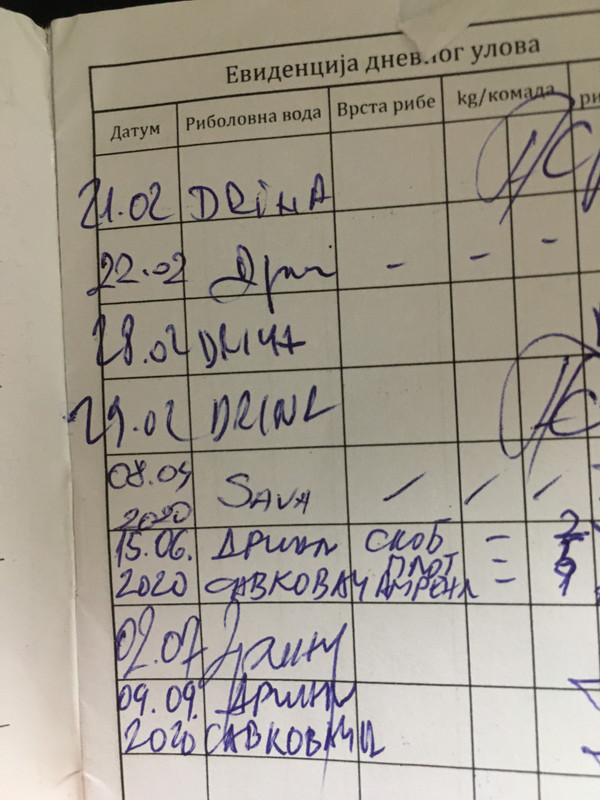 Евиденција дневног улова
Датум Риболовна вода Врста рибе kg/комада ри
21.02 DRINA
22.02 - - -
28.02 DRINA
29.02 DRINA
08.04 SAVA / / /
2020
15.06. ДРИНА СКОБ - 2
ПЛОТ
2020 САВКОВАЧ МРЕНА -
02.07
09.09. ДРИНА
2020 САВКОВАЧ